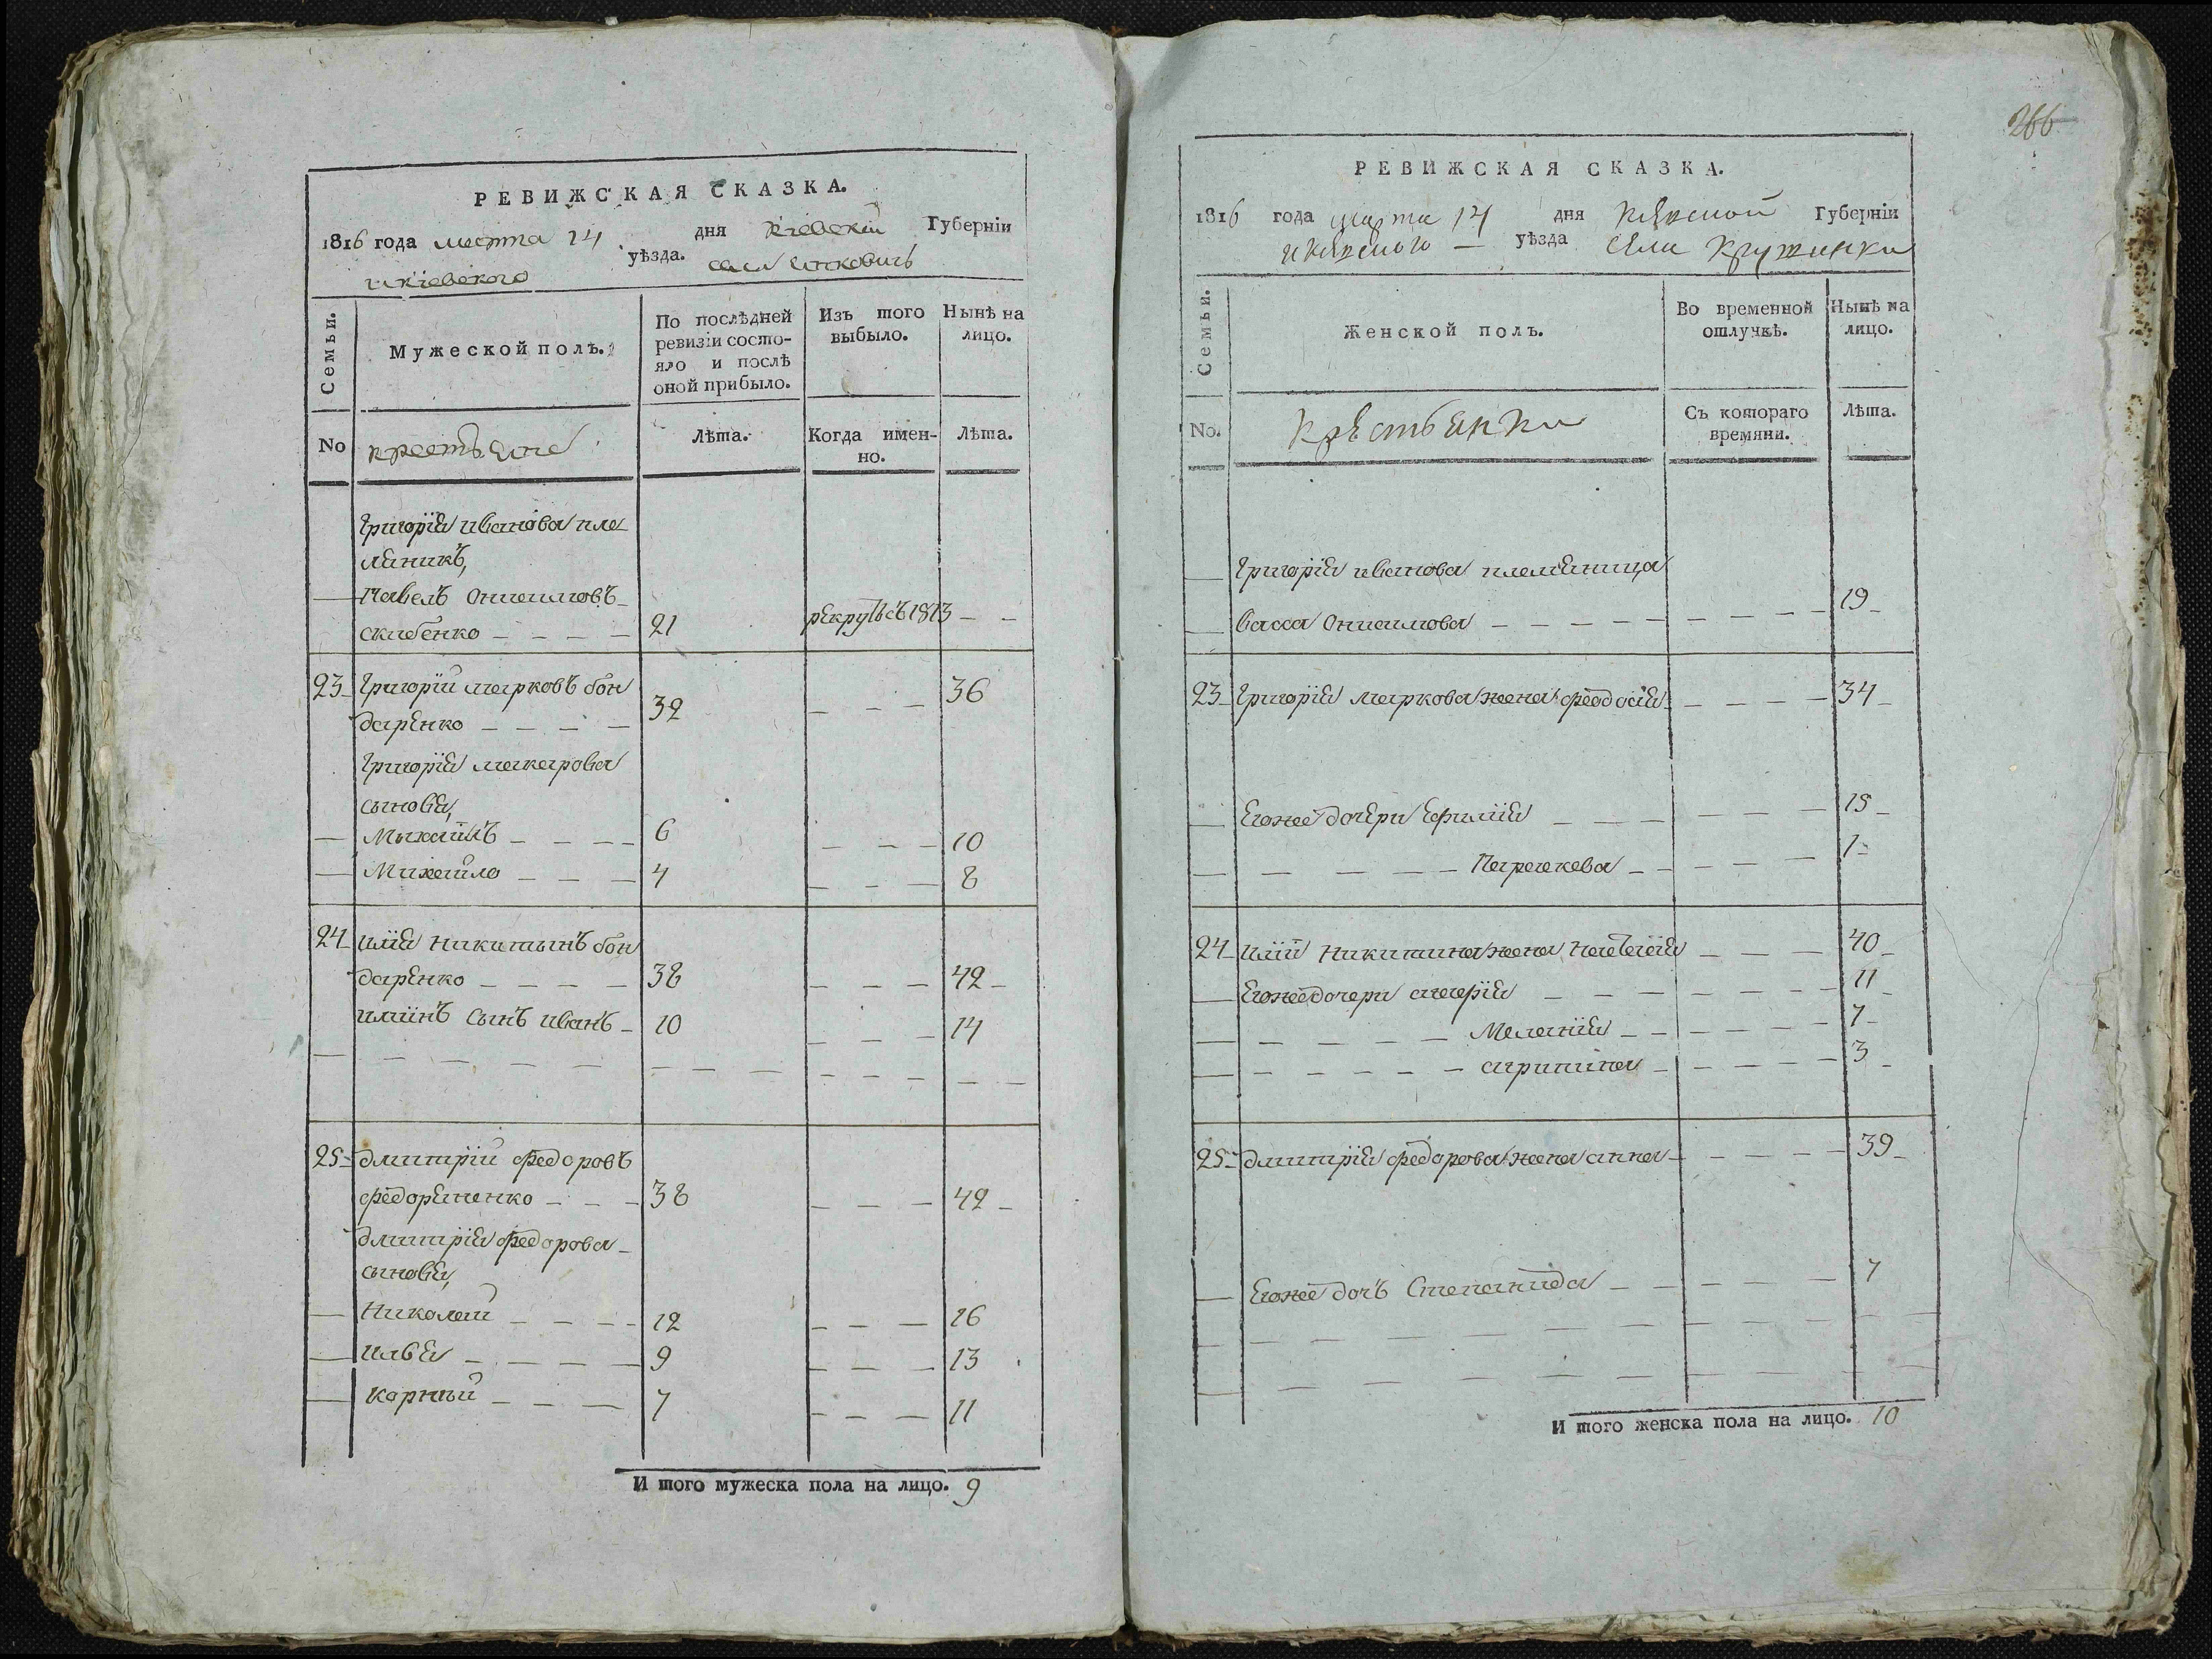 РЕВИЖСКАЯ СКАЗКА.
1816 года марта 14 дня Кіевскій Губерніи
и кіевского уѣзда. села
Семьи.
Мужеской полъ.
По послѣдней ревизіи состо-
яло и послѣ
оной прибыло.
Изъ того
выбыло.
Нынѣ на
лицо.
No крестьяне
Лѣта.
Когда имен-
но.
Лѣта.
Григорія иванова пле
мяникъ,
Павелъ Онисимовъ
скибенко 21 рекрутъ съ 1813
23 Григорій марковъ бон
даренко 32 36
Григорія макарова
сыновья,
Михаилъ 6 10
Михайло 4 8
24 илія никитынъ бон
даренко 38 42
иліинъ сынъ иванъ 10 14
25 дмитрій федоровъ
федоряченко 38 42
дмитрія федорова
сыновья,
Николай 12 16
илья 9 13
корный 7 11
И того мужеска пола на лицо. 9
266
РЕВИЖСКАЯ СКАЗКА.
1816 года марта 14 дня Губерніи
уѣзда села
Семьи.
Женской полъ.
Во временной
отлучкѣ.
Нынѣ на
лицо.
No. Крестьянки
Съ котораго
времяни.
Лѣта.
Григорія иванова племяница
васса Онисимова 19
23 Григорія маркова жена феодосія 34
Егоже дочери Ефимія 15
Параскева 1
24 иліи никитина жена настасія 40
Егоже дочери марія 11
Меланія 7
агрипина 3
25 дмитрія федорова жена анна 39
Егоже дочь Степанида 7
И того женска пола на лицо. 10